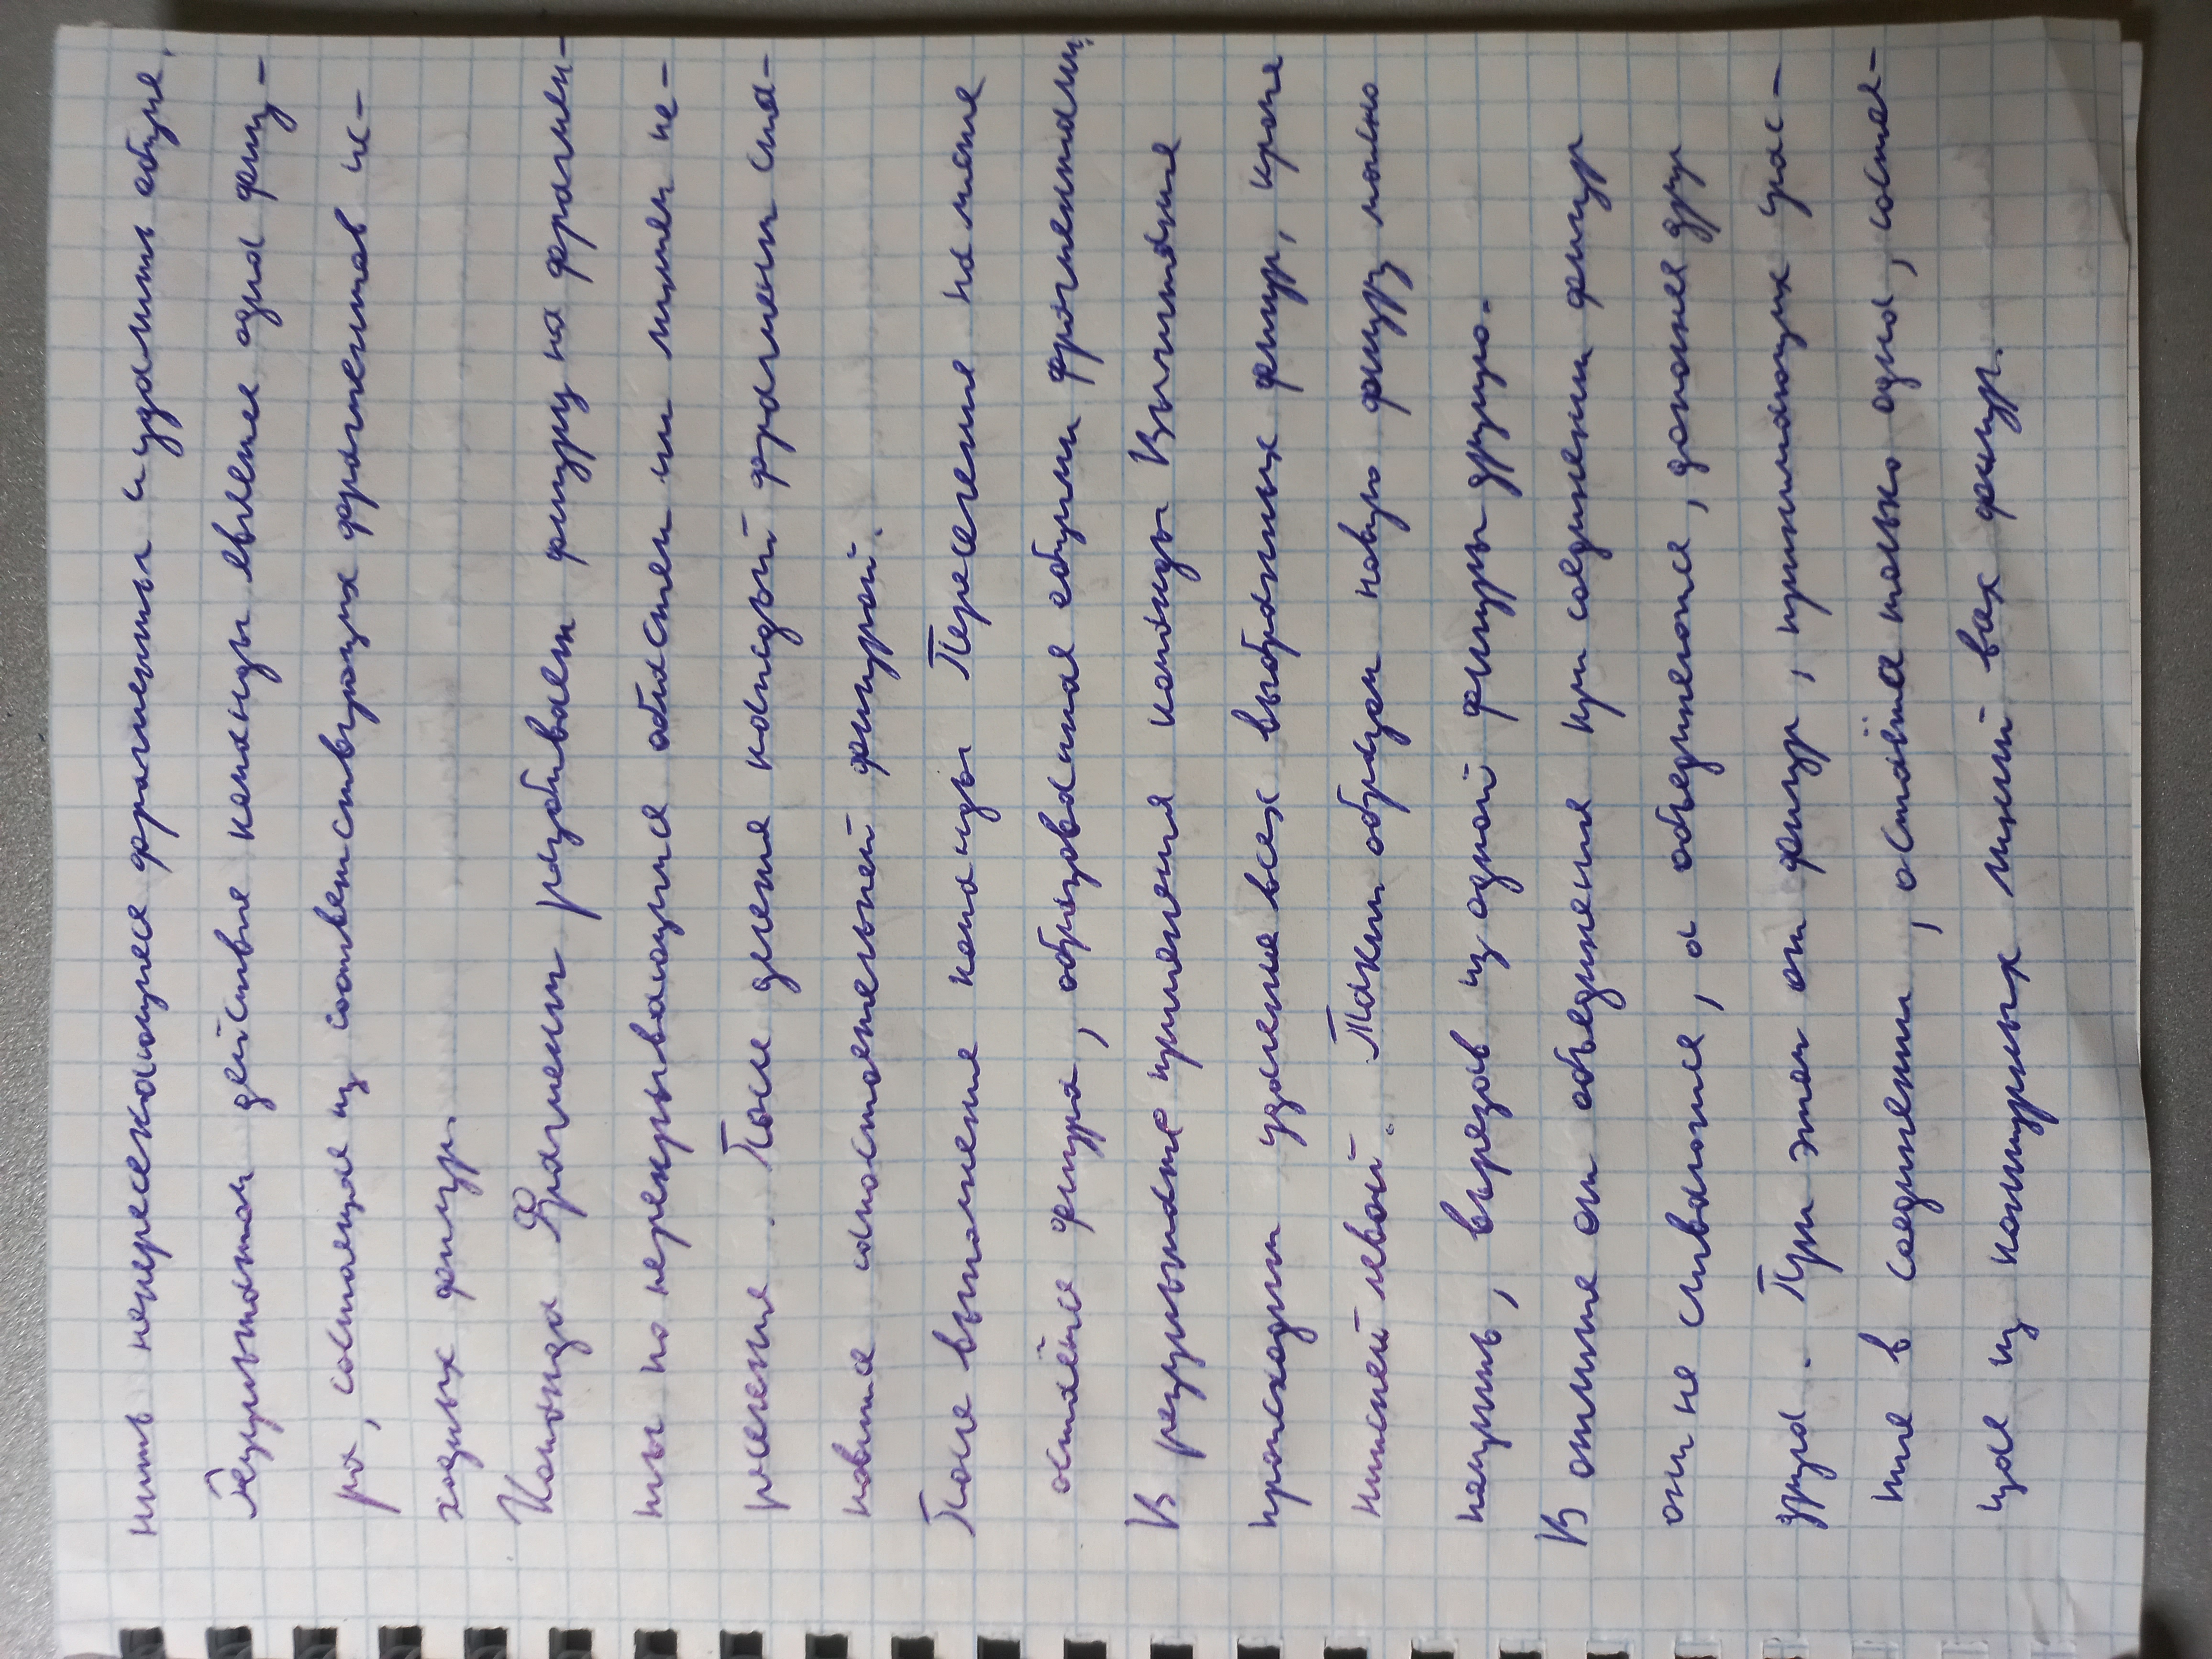 нить непересекающиеся фрагменты и удалить общие.
Результатом действие команды является одна фигу-
ра, состоящая из соответствующих фрагментов ис-
ходных фигур.
Команда Фрагмент разбивает фигуру на фрагмен-
ты по перекрывающимся областям или линиям пе-
ресечения. После деления каждый фрагмент ста-
новится самостоятельной фигурой.
После выполнения команды Пересечение на листе
остаётся фигура, образованная общими фрагментами.
В результате применения команды Вычитание
происходит удаление всех выбранных фигур, кроме
нижней левой. Таким образом новую фигуру можно
получить, вырезав из одной фигуры другую.
В отличие от объединения при соединении фигур
они не сливаются, а объединяются, дополняя друг
друга. При этом от фигур, принимающих учас-
тие в соединении, остаётся только одна, состоя-
щая из контурных линий всех фигур.